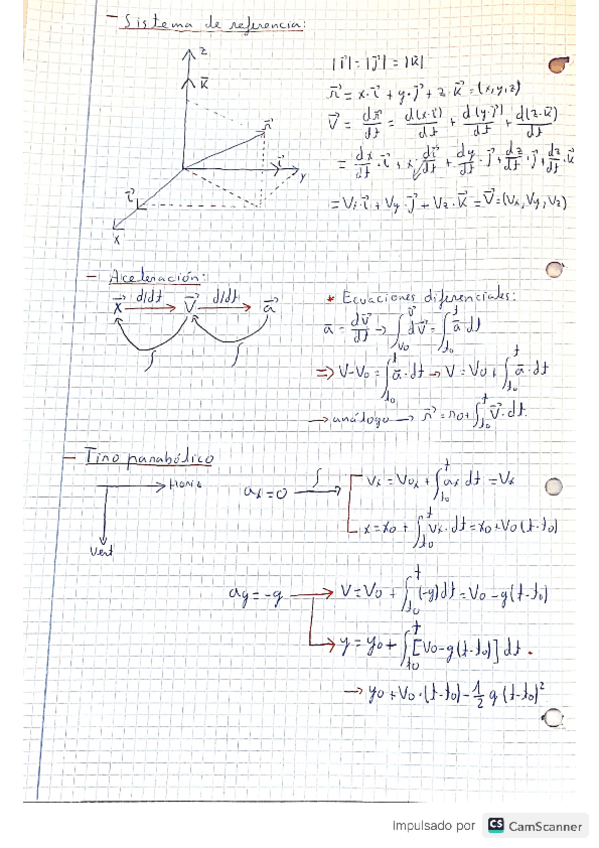 - Sistema de referencia:
z
K⃗
r⃗
i⃗
y
i⃗
x
|i⃗| = |j⃗| = |k⃗|
r⃗ = x·i⃗ + y·j⃗ + z·k⃗ = (x, y, z)
V⃗ = dr⃗/dt = d(x·i⃗)/dt + d(y·j⃗)/dt + d(z·k⃗)/dt
= dx/dt·i⃗ + x·di⃗/dt + dy/dt·j⃗ + dz/dt·j⃗ + dz/dt·k⃗
= Vx·i⃗ + Vy·j⃗ + Vz·k⃗ = V⃗ = (Vx, Vy, Vz)
- Aceleración:
x⃗ d/dt → V⃗ d/dt → a⃗
∫ ∫
* Ecuaciones diferenciales:
a⃗ = dv⃗/dt → ∫_{v0}^{v⃗} dv⃗ = ∫_{t0}^{t} a⃗ dt
⇒ V-V0 = ∫_{t0}^{t} a⃗·dt → V = V0 + ∫_{t0}^{t} a⃗·dt
→ análogo → r⃗ = r0 + ∫_{t0}^{t} V⃗·dt.
- Tiro parabólico
Horiz
Vert
ax = 0 ∫ → Vx = V0x + ∫_{t0}^{t} ax dt = Vx
x = x0 + ∫_{t0}^{t} Vx·dt = x0 + V0(t-t0)
ay = -g → V = V0 + ∫_{t0}^{t} (-g)dt = V0 - g(t-t0)
y = y0 + ∫_{t0}^{t} [V0-g(t-t0)] dt.
→ y0 + V0·(t-t0) - 1/2 g (t-t0)²
Impulsado por CS CamScanner